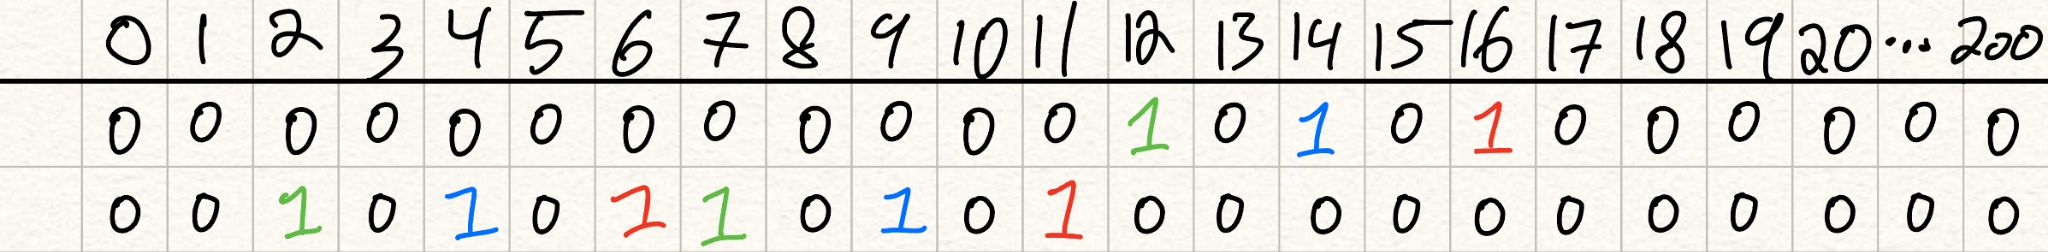 0 1 2 3 4 5 6 7 8 9 10 11 12 13 14 15 16 17 18 19 20 ... 200
0 0 0 0 0 0 0 0 0 0 0 0 1 0 1 0 1 0 0 0 0 0 0
0 0 1 0 1 0 1 1 0 1 0 1 0 0 0 0 0 0 0 0 0 0 0